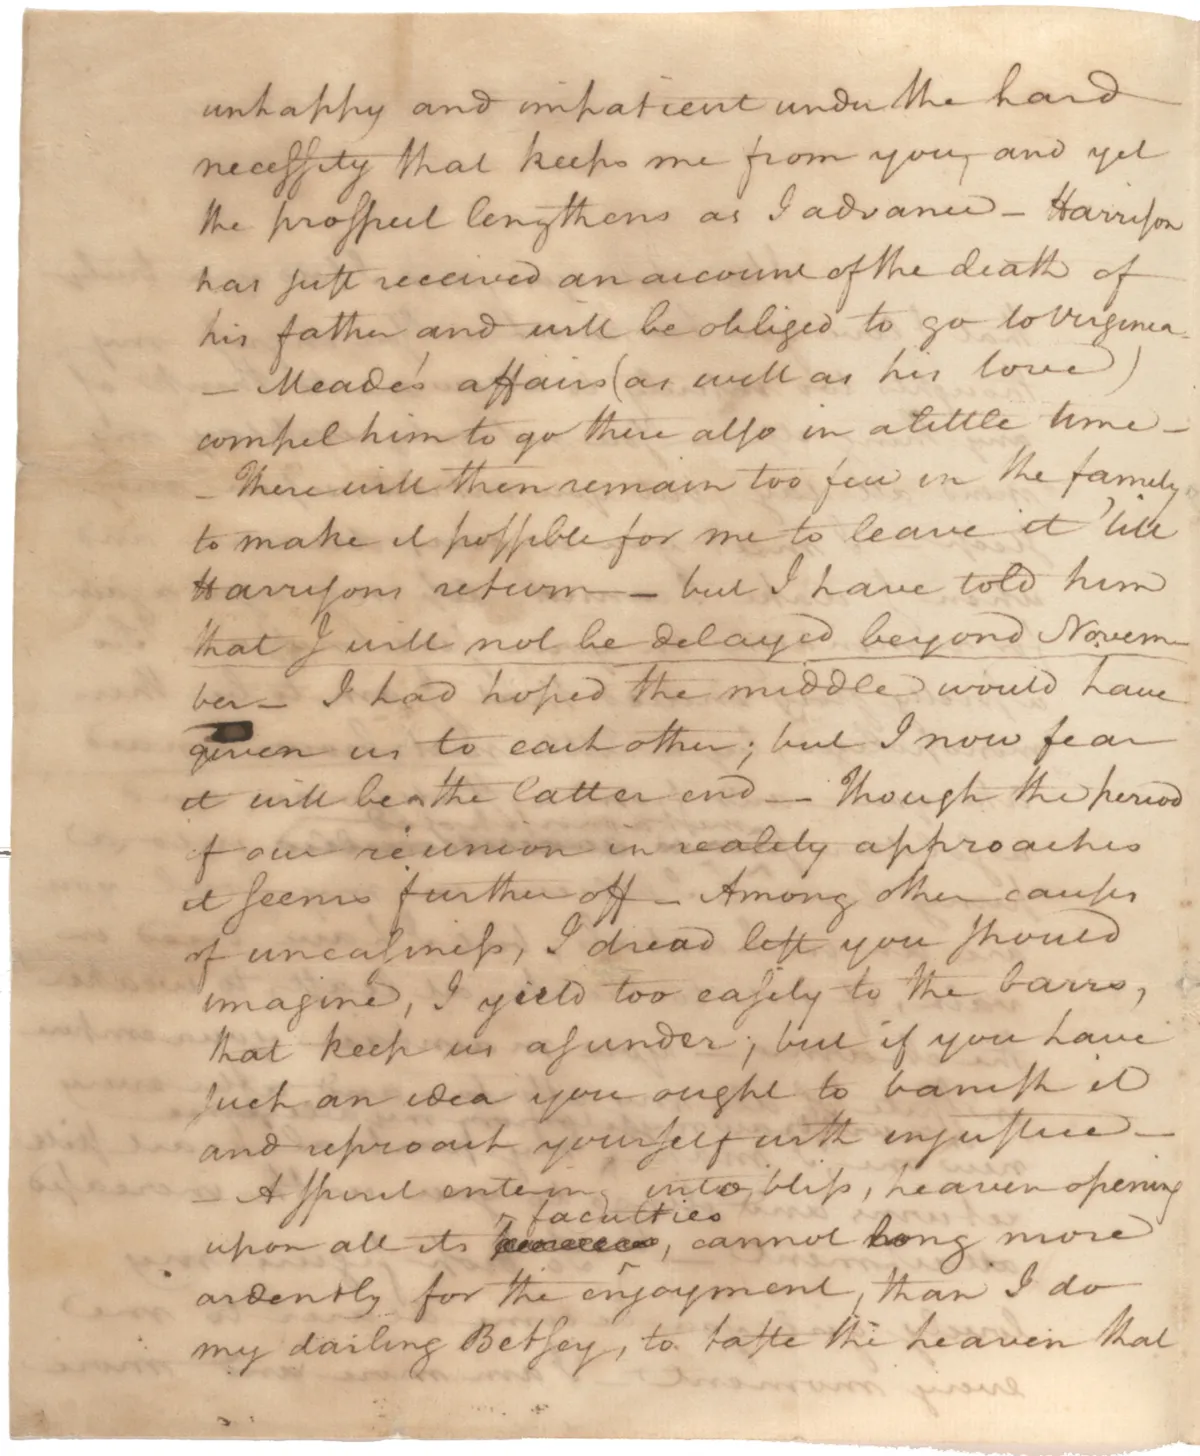 unhappy and impatient under the hard
necessity that keeps me from you, and yet
the prospect lengthens as I advance – Harrison
has just received an account of the death of
his father and will be obliged to go to Virginia
– Meade's affairs (as well as his love)
compel him to go there also in a little time –
– There will then remain too few in the family
to make it possible for me to leave it 'till
Harrisons return – but I have told him
that I will not be delayed beyond Novem
ber – I had hoped the middle would have
given us to each other; but I now fear
it will be the latter end – Though the period
of our reunion in reality approaches
it seems further off – Among other causes
of uneasiness, I dread lest you should
imagine, I yield too easily to the barrs,
that keep us asunder; but if you have
such an idea you ought to banish it
and reproach yourself with injustice –
– A spirit entering into bliss, heaven opening
upon all its faculties, cannot long more
ardently for the enjoyment, than I do
my darling Betsey, to taste the heaven that